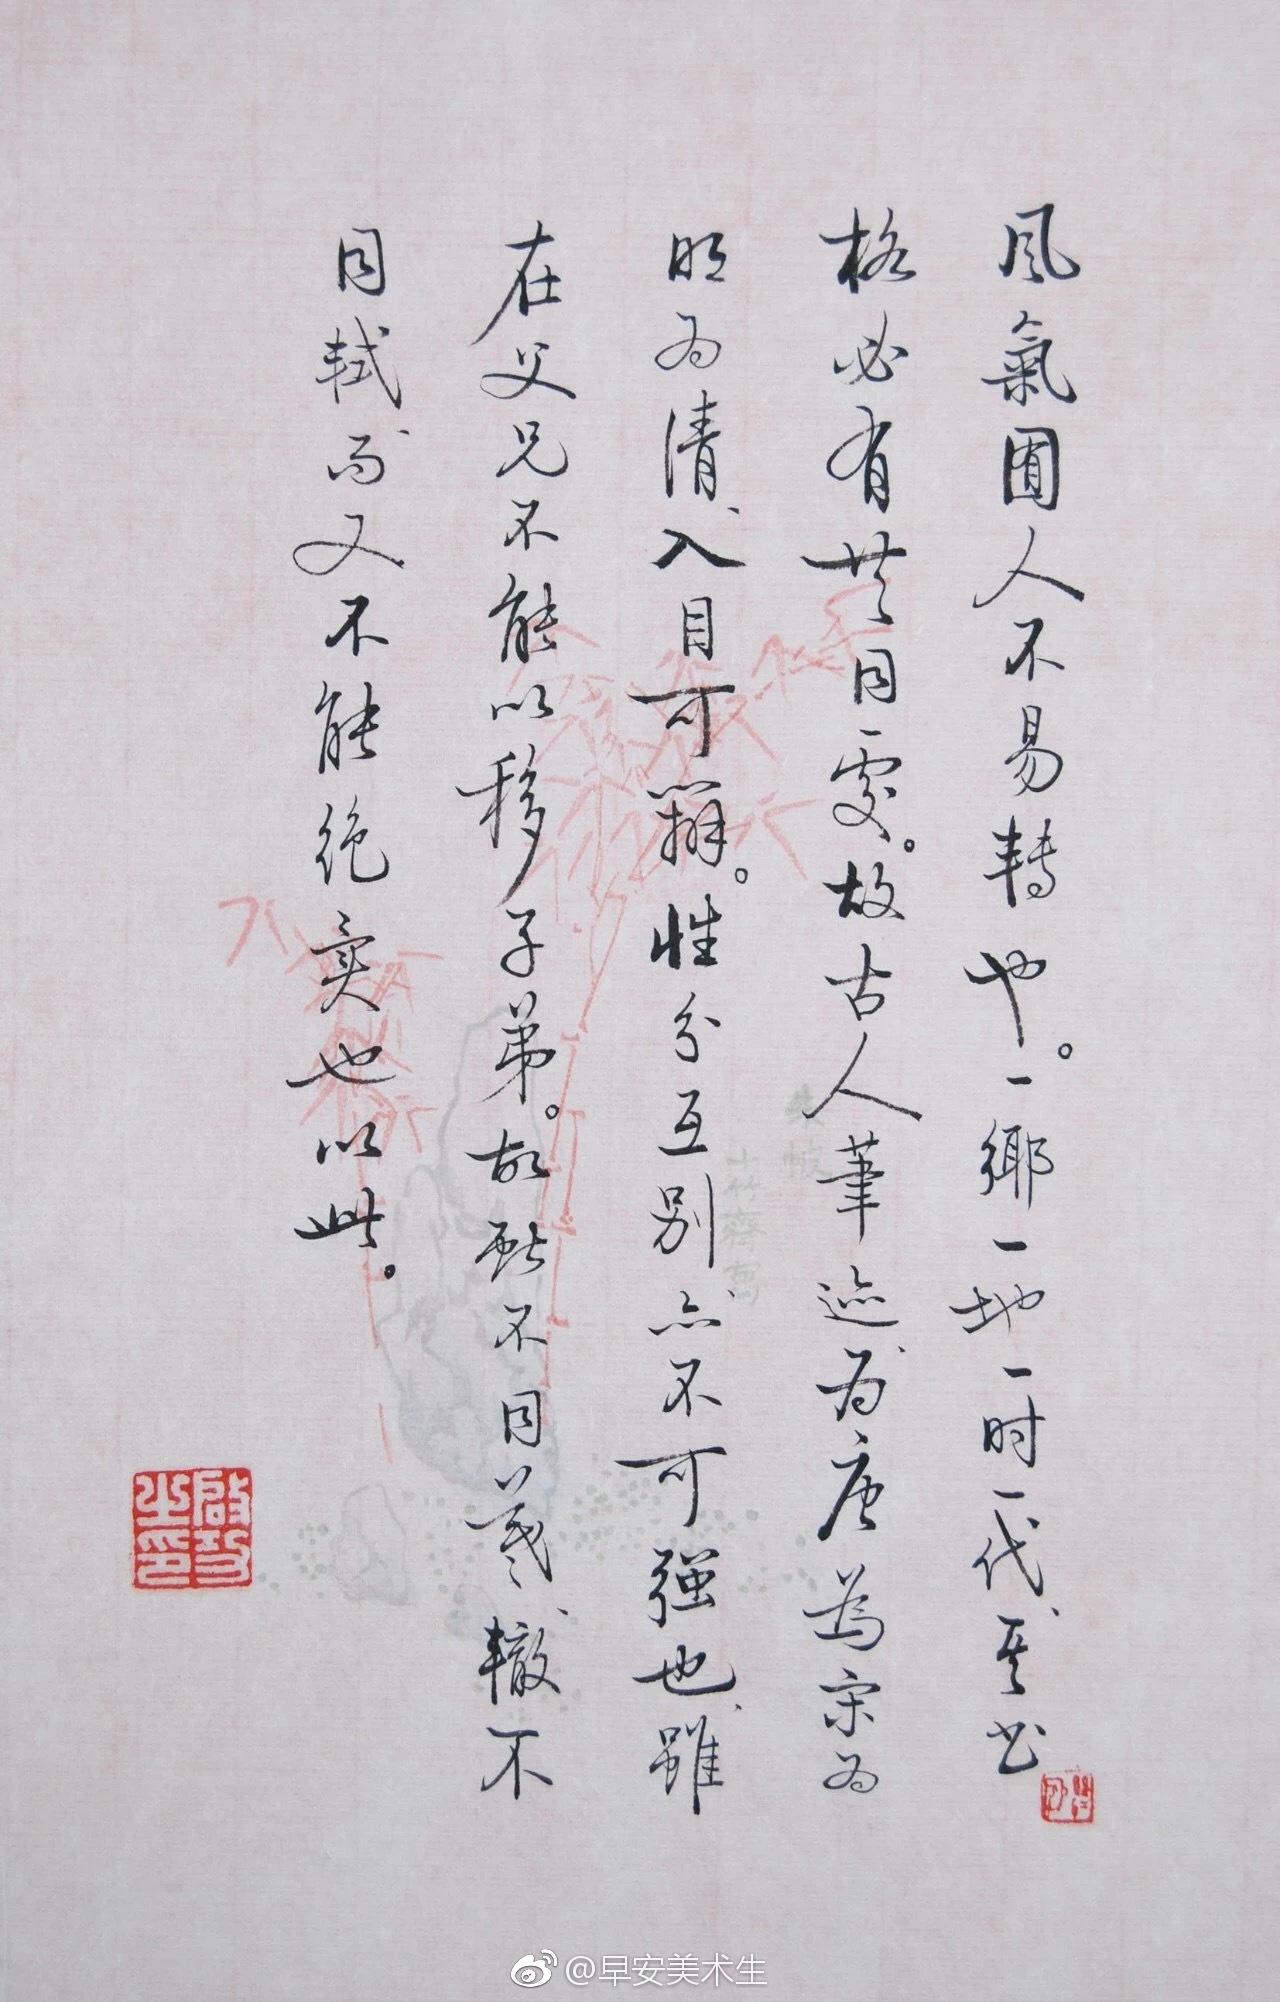 風氣囿人不易轉也。一鄉一地一时一代、其书
格必有其同處。故古人筆迹、为唐為宋为
明为清、入目可辨。性分互别、亦不可强也、雖
在父兄不能以移子弟。故献不同羲、轍不
同軾、而又不能絶異也以此。
啟功之印
@早安美术生